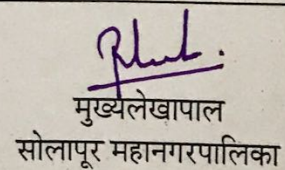 मुख्यलेखापाल
सोलापूर महानगरपालिका